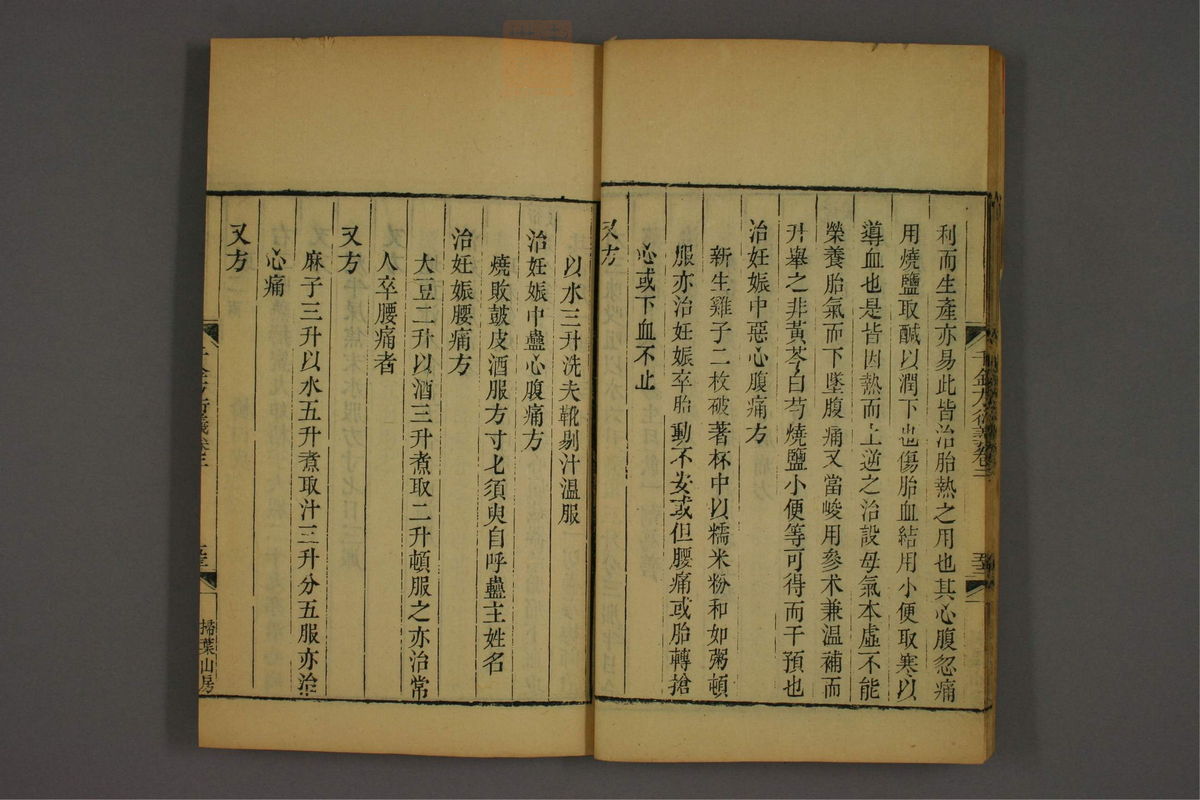 利而生產亦易此皆治胎熱之用也其心腹忽痛
用燒鹽取鹹以潤下也傷胎血結用小便取寒以
導血也是皆因熱而上逆之治設母氣本虛不能
榮養胎氣而下墜腹痛又當峻用參术兼溫補而
升舉之非黃芩白芍燒鹽小便等可得而干預也
治妊娠中惡心腹痛方
新生雞子二枚破著杯中以糯米粉和如粥頓
服亦治妊娠卒胎動不安或但腰痛或胎轉搶
心或下血不止
又方
以水三升洗夫靴剔汁溫服
治妊娠中蠱心腹痛方
燒敗鼓皮酒服方寸匕須臾自呼蠱主姓名
治妊娠腰痛方
大豆二升以酒三升煮取二升頓服之亦治常
人卒腰痛者
又方
麻子三升以水五升煮取汁三升分五服亦治
心痛
又方
千金方衍義卷三
掃葉山房